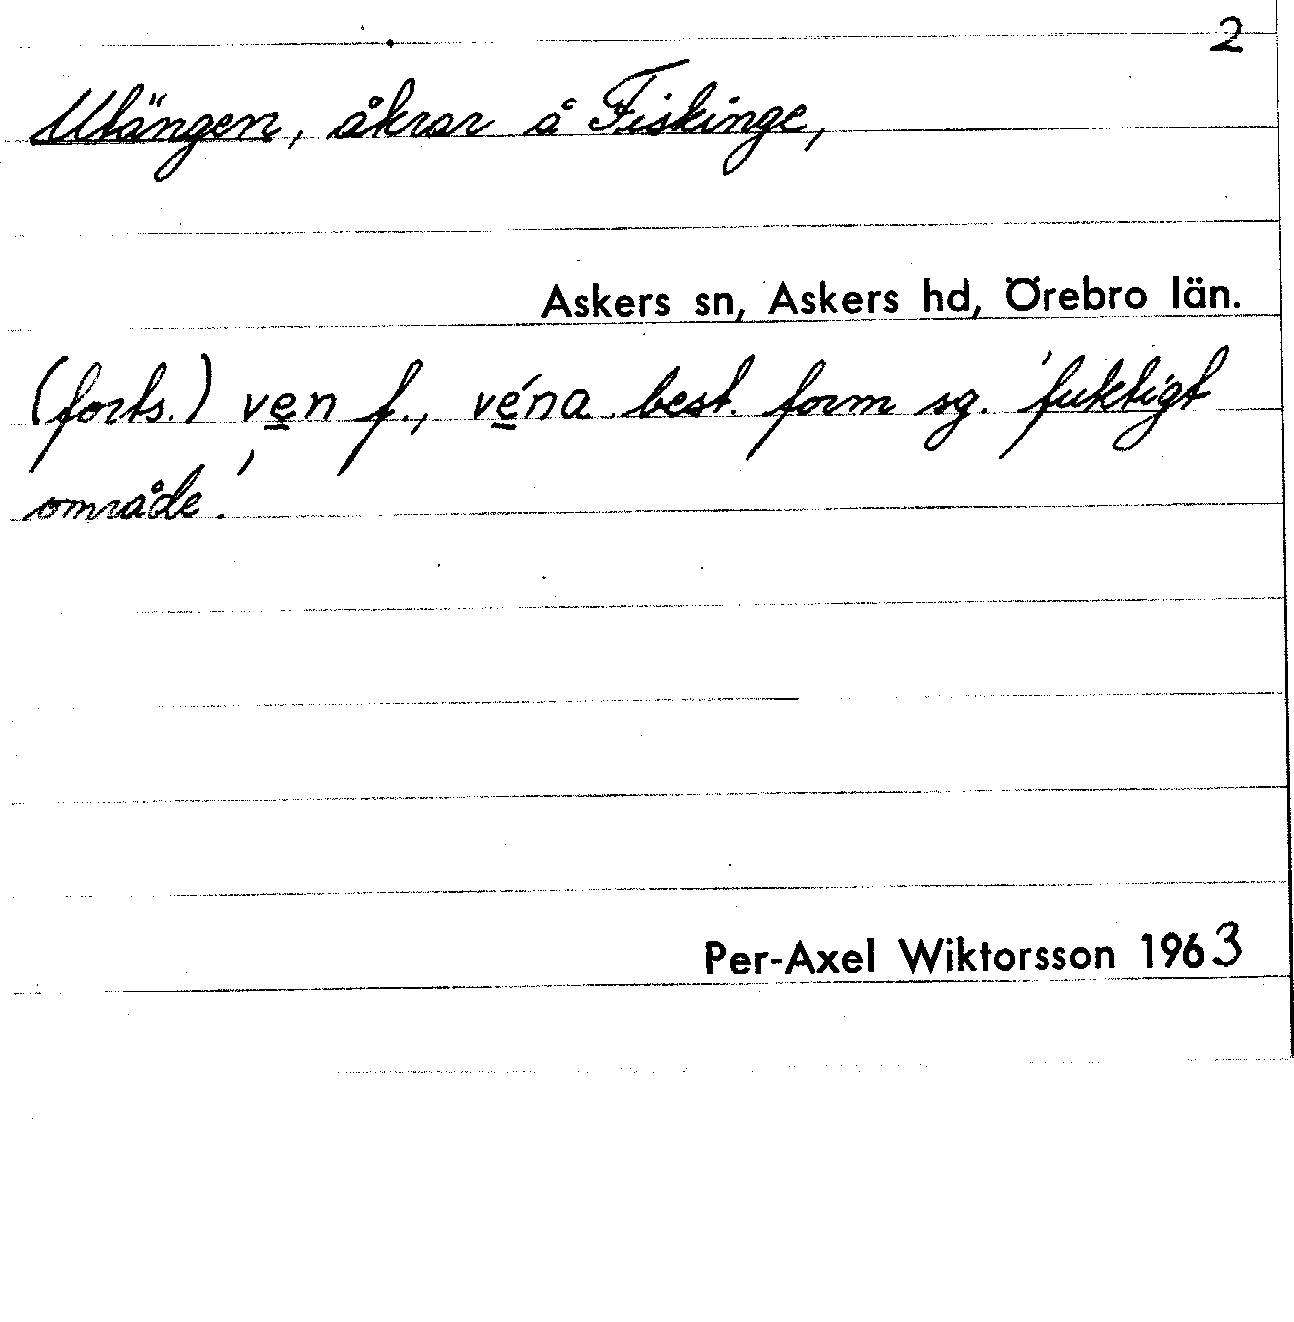 2
Utängen, åkrar å Fiskinge,
Askers sn, Askers hd, Örebro län.
(forts.) ve̲n f., vé̲na best. form sg. 'fuktigt
område.'
Per-Axel Wiktorsson 1963